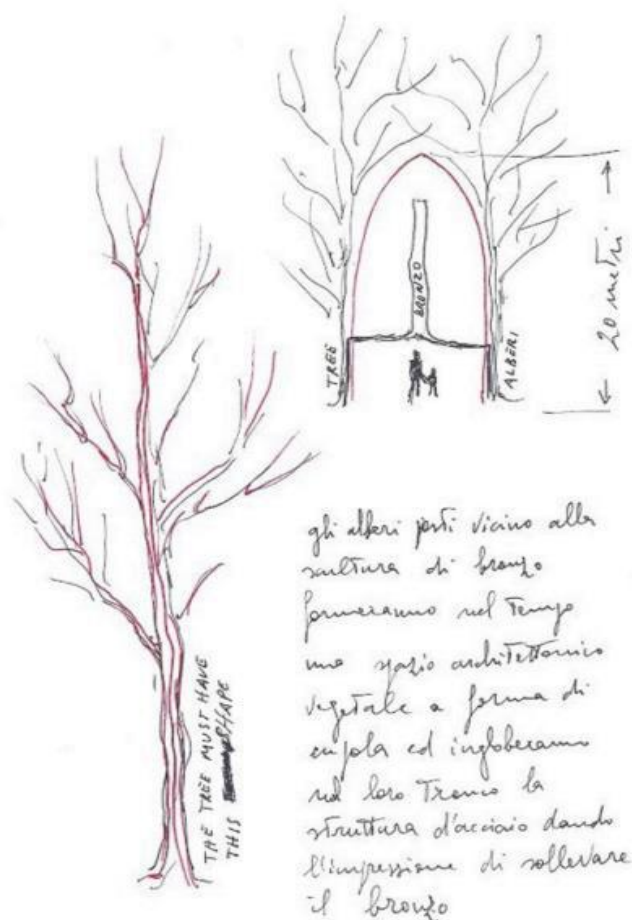 BRONZO
TREE
ALBERI
20 metri
THE TREE MUST HAVE
THIS SHAPE
gli alberi posti vicino alla
scultura di bronzo
formeranno nel tempo
uno spazio architettonico
vegetale a forma di
cupola ed ingloberanno
nel loro tronco la
struttura d'acciaio dando
l'impressione di sollevare
il bronzo